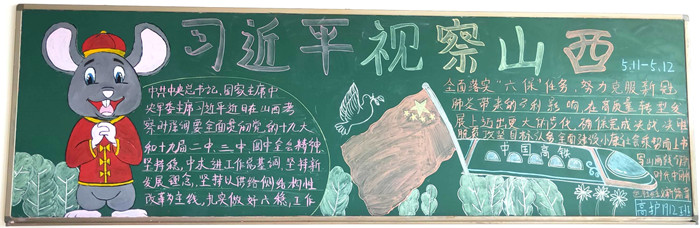 习近平视察山西
5.11-5.12
中共中央总书记、国家主席、中
央军委主席习近平近日在山西考
察时强调要全面贯彻党的十九大
和十九届二中、三中、四中全会精神,
坚持稳中求进工作总基调,坚持新
发展理念,坚持以供给侧结构性
改革为主线,扎实做好六稳工作
全面落实“六保”任务,努力克服新冠
肺炎带来的不利影响,在高质量转型发
展上迈出更大的步伐,确保完成决战决胜
脱贫攻坚目标任务全面建成小康社会
中国高铁
高护1912班